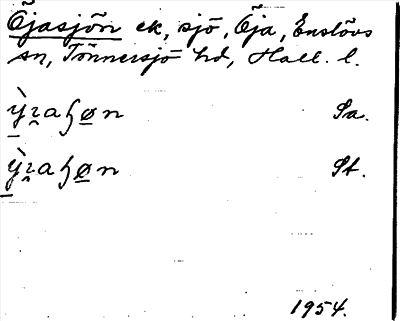 Öjasjön ek, sjö, Öja, Enslövs
sn, Tönnersjö hd, Hall. l.
Sa.
St.
1954.